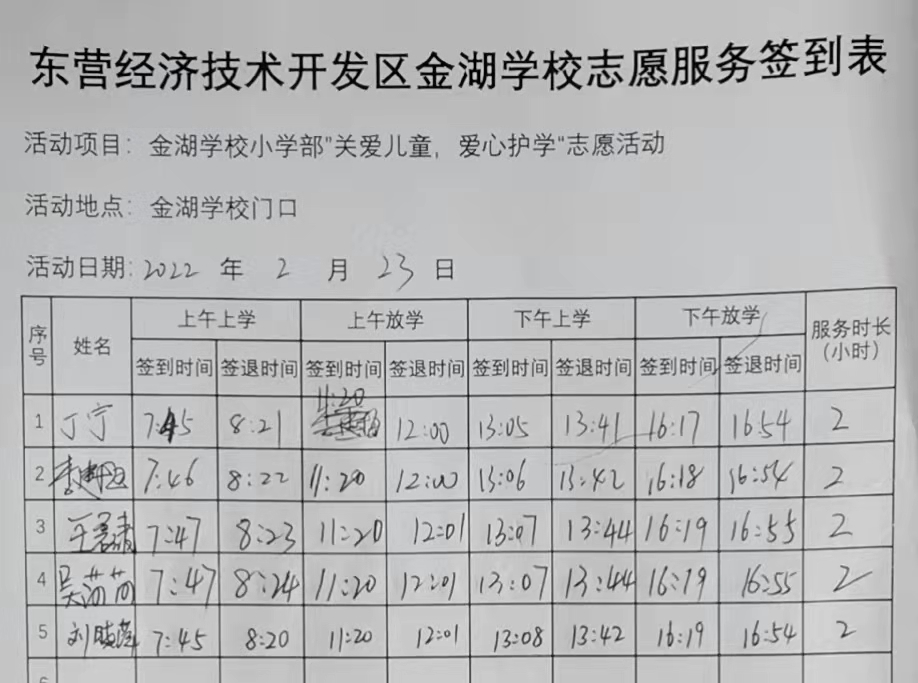 东营经济技术开发区金湖学校志愿服务签到表
活动项目：金湖学校小学部"关爱儿童，爱心护学"志愿活动
活动地点：金湖学校门口
活动日期：2022 年 2 月 23 日
序号 姓名 上午上学 上午放学 下午上学 下午放学 服务时长（小时）
签到时间 签退时间 签到时间 签退时间 签到时间 签退时间 签到时间 签退时间
1 丁宁 7:45 8:21 11:20 12:00 13:05 13:41 16:17 16:54 2
2 7:46 8:22 11:20 12:00 13:06 13:42 16:18 16:54 2
3 7:47 8:23 11:20 12:01 13:07 13:44 16:19 16:55 2
4 7:47 8:24 11:20 12:01 13:07 13:44 16:19 16:55 2
5 刘晓 7:45 8:20 11:20 12:01 13:08 13:42 16:19 16:54 2